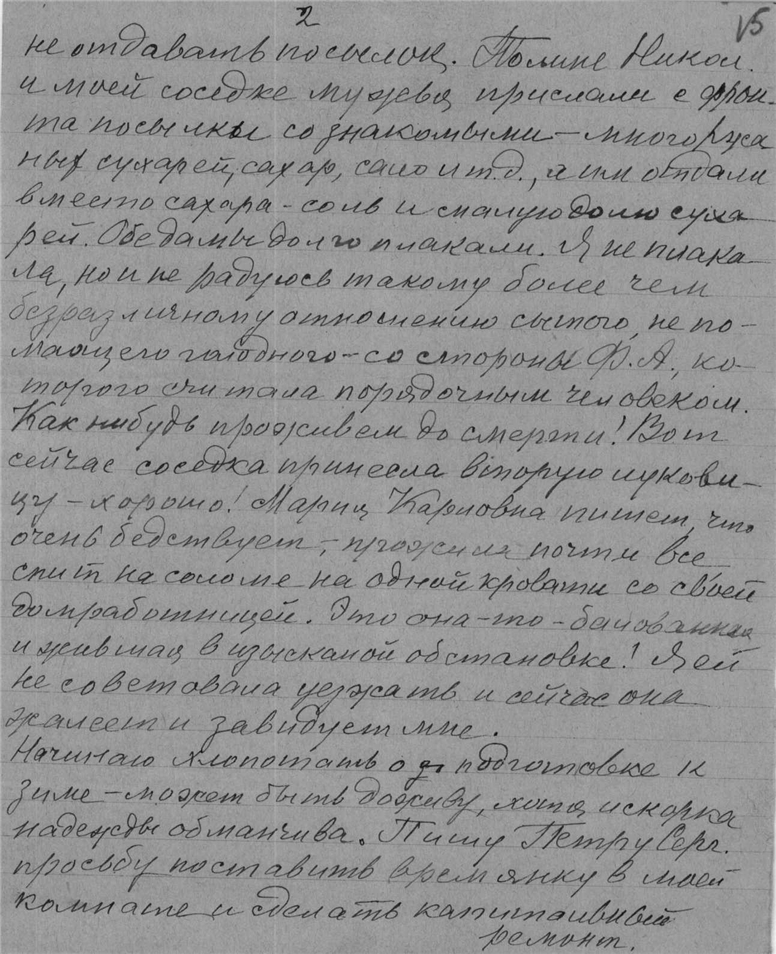 2
15
не отдавать посылок. Полине Никол.
и моей соседке мужья прислали с фрон-
та посылки со знакомыми – много ржа
ных сухарей, сахар, сало и т.д., а им отдали
вместо сахара – соль и малую долю суха
рей. Обе дамы долго плакали. Я не плака-
ла, но и не радуюсь такому более чем
безразличному отношению сытого, не по-
мающего голодного – со стороны Ф.А., ко-
торого считала порядочным человеком.
Как нибудь проживем до смерти! Вот
сейчас соседка принесла вторую лукови-
цу – хорошо! Мария Карповна пишет, что
очень бедствует, – прожила почти все
спит на соломе на одной кровати со своей
домработницей. Это она-то – балованная
и жившая в изысканой обстановке! Я ей
не советовала уезжать и сейчас она
жалеет и завидует мне.
Начинаю хлопотать о подготовке к
зиме – может быть доживу, хотя искорка
надежды обманчива. Пишу Петру Серг.
просьбу поставить времянку в моей
комнате и сделать капитальный
ремонт.